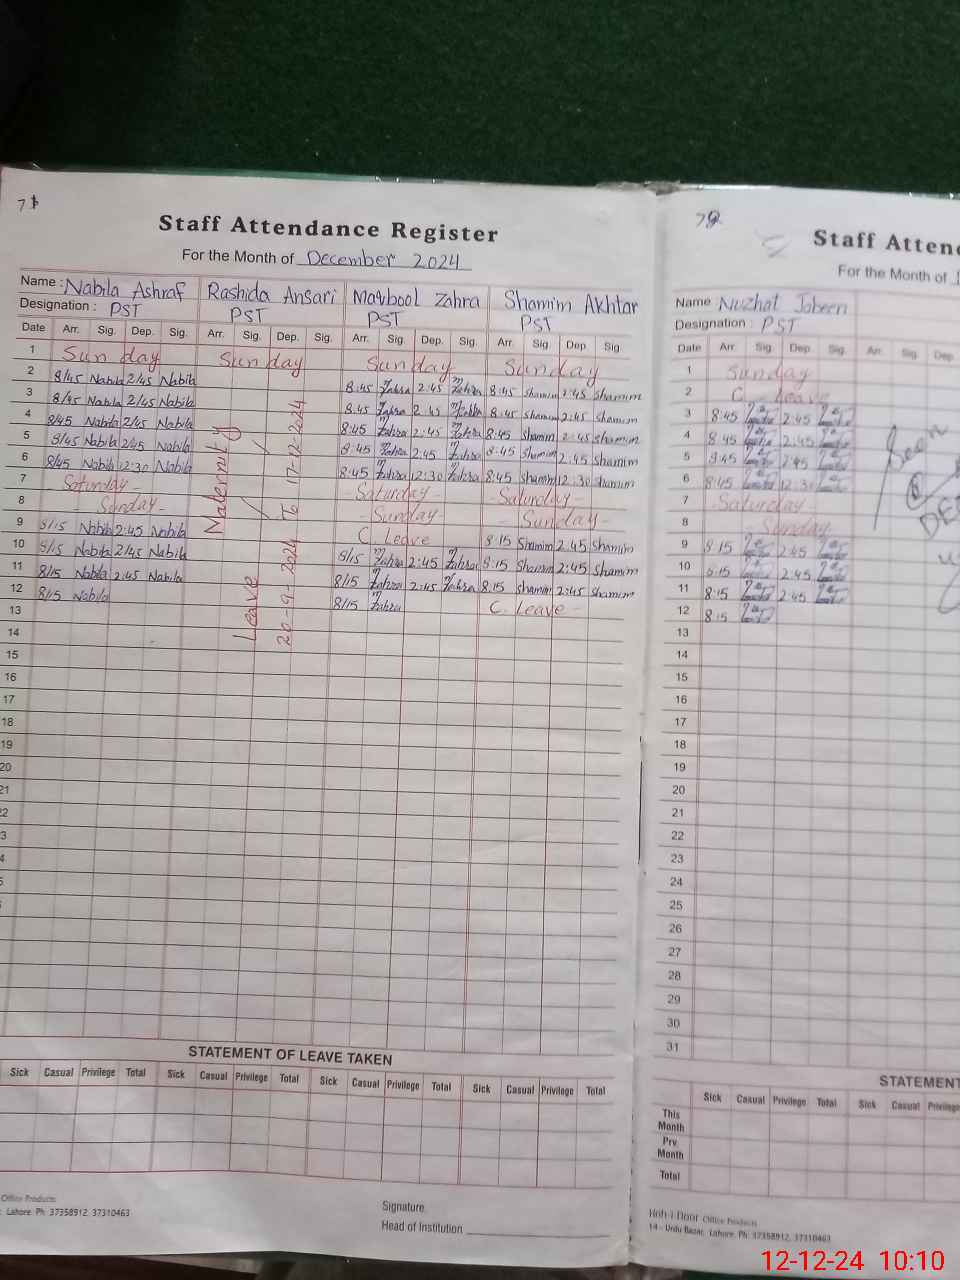 71
Staff Attendance Register
For the Month of December 2024
Name : Nabila Ashraf Rashida Ansari Maqbool Zahra Shamim Akhtar
Designation : PST PST PST PST
Date Arr. Sig. Dep. Sig. Arr. Sig. Dep. Sig. Arr. Sig. Dep. Sig. Arr. Sig. Dep. Sig.
1 Sunday Sunday Sunday Sunday
2 8/45 Nabila 2/45 Nabila 8:45 Zahra 2:45 Zahra 8:45 Shamim 2:45 Shamim
3 8/45 Nabila 2/45 Nabila 8:45 Zahra 2:45 Zahra 8:45 Shamim 2:45 Shamim
4 8/45 Nabila 2/45 Nabila 8:45 Zahra 2:45 Zahra 8:45 Shamim 2:45 Shamim
5 8/45 Nabila 2/45 Nabila 8:45 Zahra 2:45 Zahra 8:45 Shamim 2:45 Shamim
6 8/45 Nabila 12:30 Nabila 8:45 Zahra 12:30 Zahra 8:45 Shamim 12:30 Shamim
7 Saturday - - Saturday - - Saturday -
8 - Sunday - - Sunday - - Sunday -
9 8/15 Nabila 2:45 Nabila C. Leave 8:15 Shamim 2:45 Shamim
10 8/15 Nabila 2/45 Nabila 8/15 Zahra 2:45 Zahra 8:15 Shamim 2:45 Shamim
11 8/15 Nabila 2:45 Nabila 8/15 Zahra 2:45 Zahra 8:15 Shamim 2:45 Shamim
12 8/15 Nabila 8/15 Zahra C. Leave -
Maternity Leave
20-9-2024 To 17-12-2024
13
14
15
16
17
18
19
20
21
STATEMENT OF LEAVE TAKEN
Sick Casual Privilege Total Sick Casual Privilege Total Sick Casual Privilege Total Sick Casual Privilege Total
Signature.
Head of Institution
Office Products
Lahore. Ph: 37358912, 37310463
72
Staff Atten
For the Month of
Name Nuzhat Jabeen
Designation : PST
Date Arr. Sig. Dep. Sig. Arr. Sig. Dep.
1 Sunday
2 C - Leave
3 8:45 2:45
4 8:45 2:45
5 8:45 2:45
6 8:45 12:30
7 Saturday
8 - Sunday
9 8:15 2:45
10 8:15 2:45
11 8:15 2:45
12 8:15
Seen
13
14
15
16
17
18
19
20
21
22
23
24
25
26
27
28
29
30
31
STATEMENT
Sick Casual Privilege Total Sick Casual Privilege
This Month
Prv. Month
Total
Koh-i-Noor Office Products
14 - Urdu Bazar, Lahore. Ph: 37358912, 37310463
12-12-24 10:10